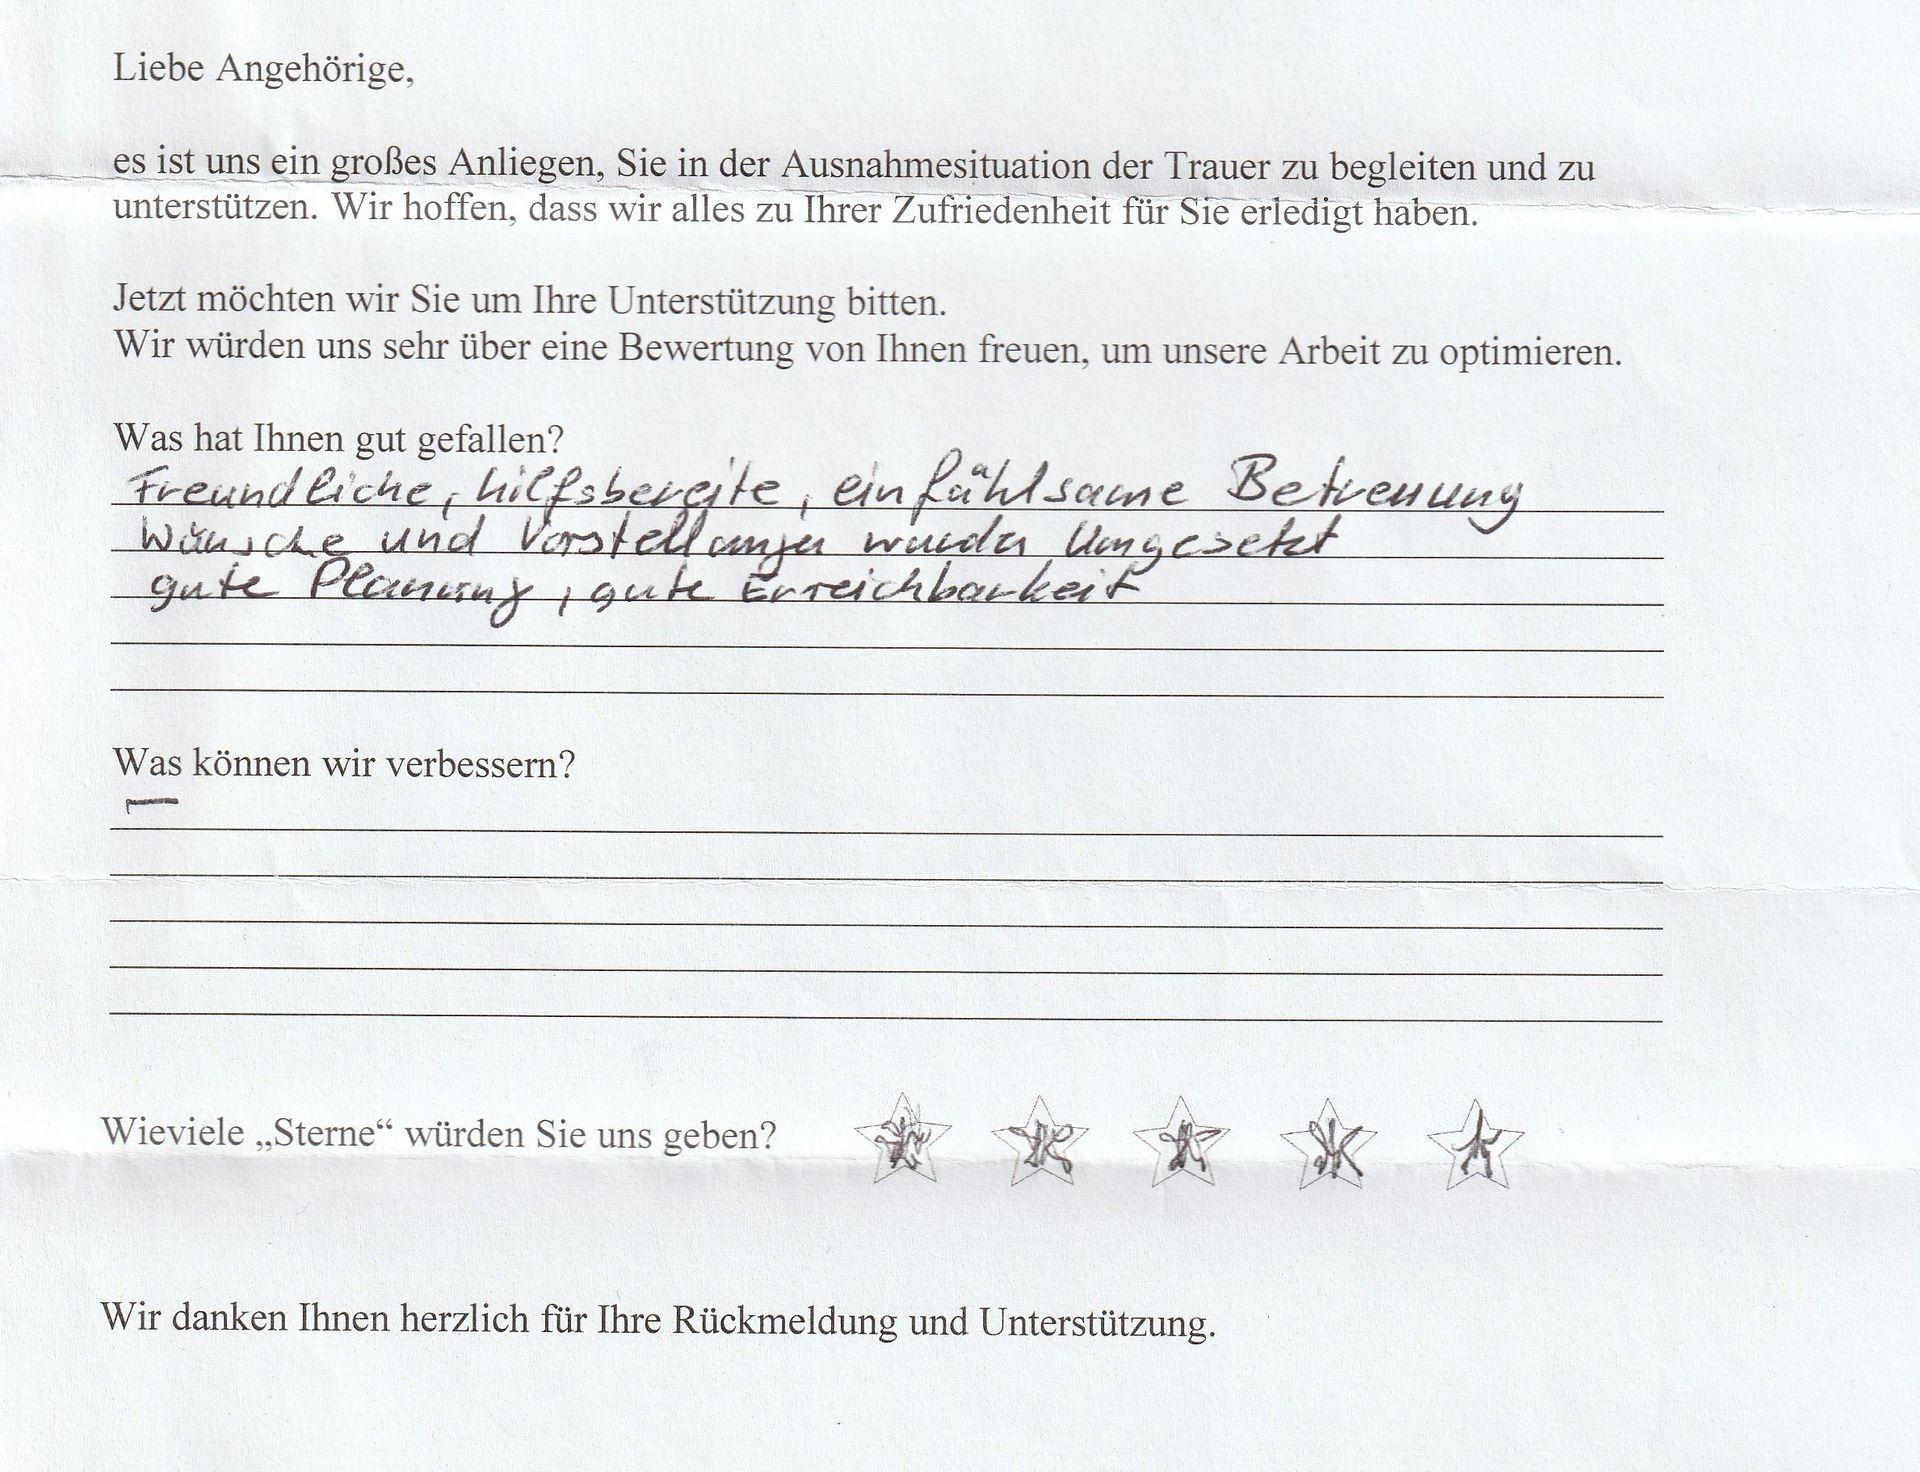 Liebe Angehörige,
es ist uns ein großes Anliegen, Sie in der Ausnahmesituation der Trauer zu begleiten und zu
unterstützen. Wir hoffen, dass wir alles zu Ihrer Zufriedenheit für Sie erledigt haben.
Jetzt möchten wir Sie um Ihre Unterstützung bitten.
Wir würden uns sehr über eine Bewertung von Ihnen freuen, um unsere Arbeit zu optimieren.
Was hat Ihnen gut gefallen?
Freundliche, hilfsbereite, einfühlsame Betreuung
Wünsche und Vorstellungen wurden Umgesetzt
gute Planung, gute Erreichbarkeit
Was können wir verbessern?
—
Wieviele „Sterne“ würden Sie uns geben?
Wir danken Ihnen herzlich für Ihre Rückmeldung und Unterstützung.